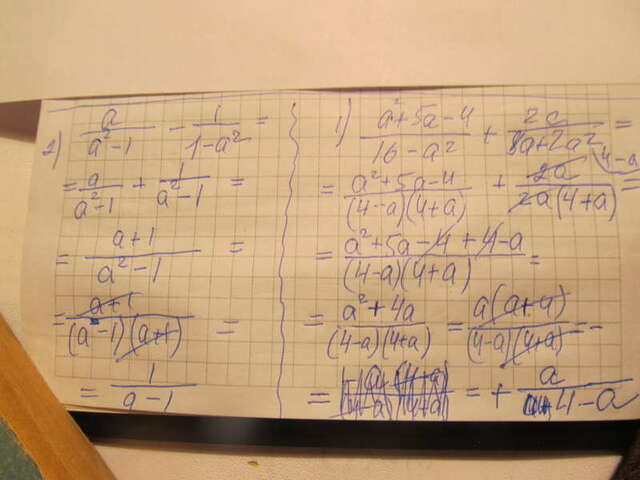 2) a/(a²-1) - 1/(1-a²) =
= a/(a²-1) + 1/(a²-1) =
= (a+1)/(a²-1) =
= (a+1)/((a-1)(a+1)) =
= 1/(a-1)
1) (a²+5a-4)/(16-a²) + 2a/(8a+2a²) =
= (a²+5a-4)/((4-a)(4+a)) + 2a/(2a(4+a)) 4-a =
= (a²+5a-4+4-a)/((4-a)(4+a)) =
= (a²+4a)/((4-a)(4+a)) = a(a+4)/((4-a)(4+a)) =
= = + a/(4-a)